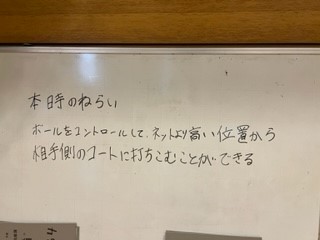 本時のねらい
ボールをコントロールして、ネットより高い位置から
相手側のコートに打ちこむことができる